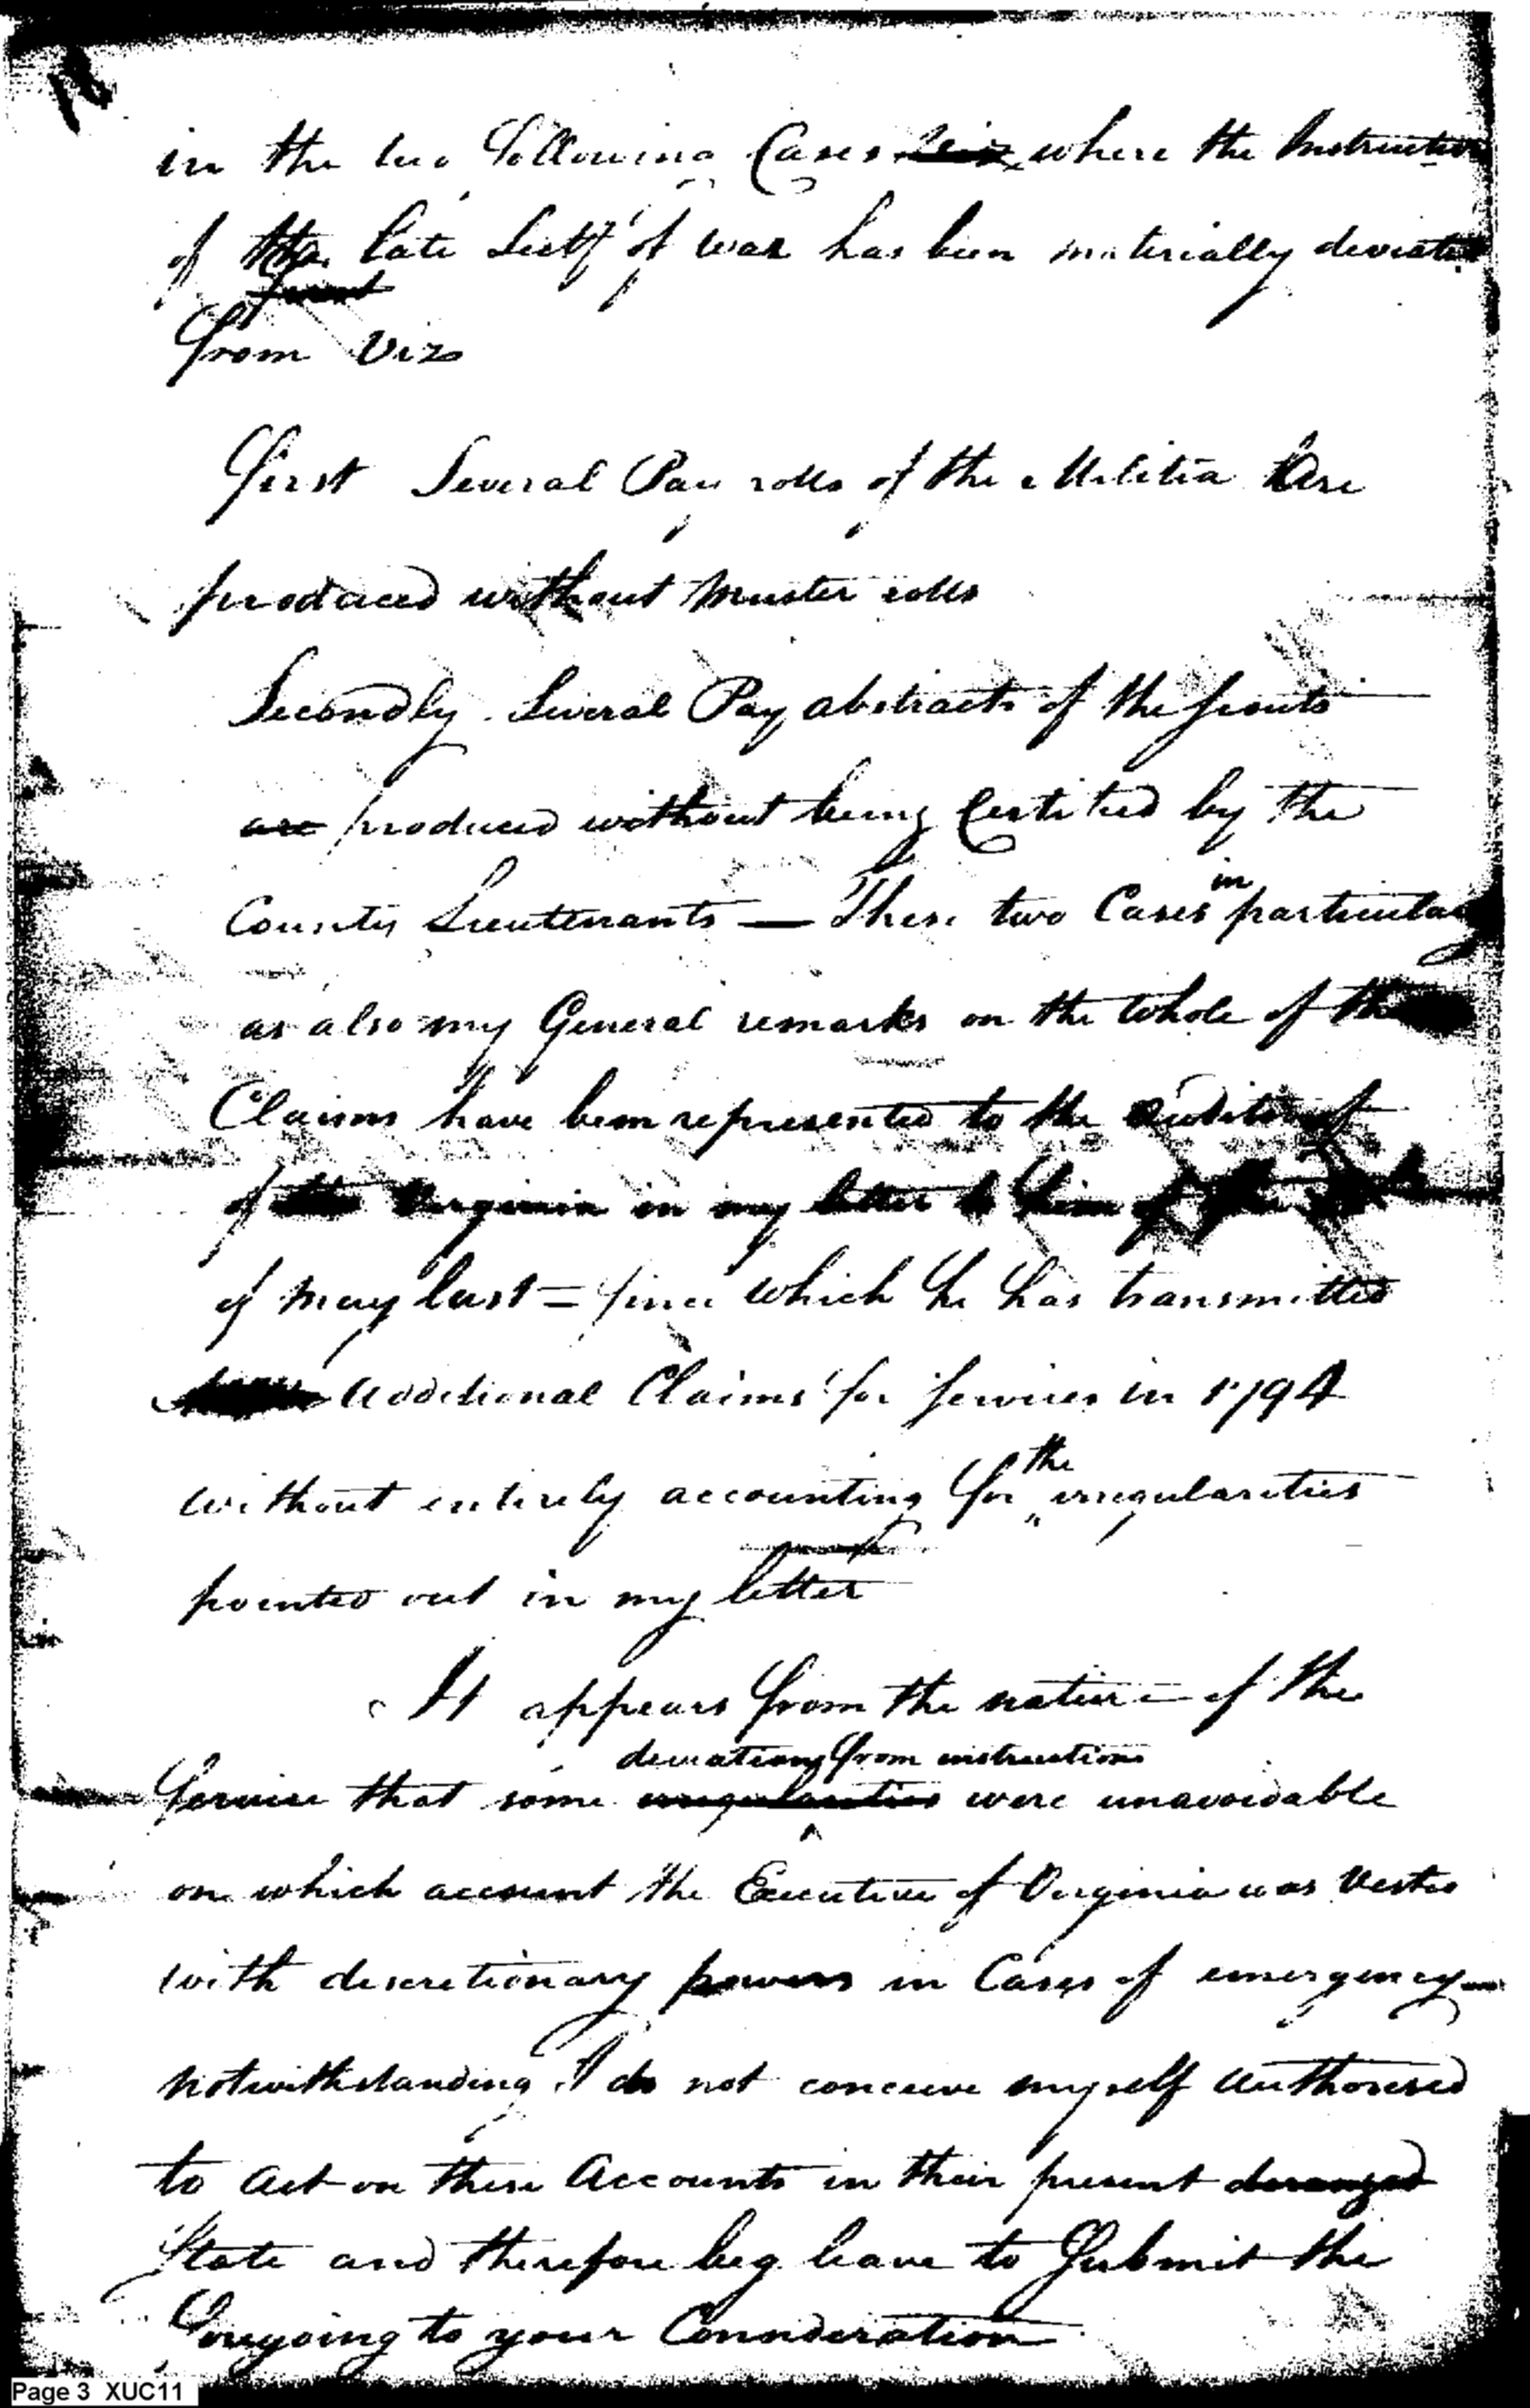 in the two following Cases viz where the Instruction
of the late Secty of war has been materially deviated
from Viz
first Several Pay rolls of the Militia Are
produced without muster rolls
Secondly Several Pay abstracts of the scouts
are produced without being Certified by the
County Lieutenants — These two Cases in particular
as also my General remarks on the whole of the
Claims have been represented to the Auditor of
of Virginia in my letter to him of the
of may last = since which he has transmitted
Additional Claims for services in 1794
without entirely accounting for the irregularities
pointed out in my letter
It appears from the nature of the
deviations from instructions
Service that some irregularities were unavoidable
on which account the Executive of Virginia was Vested
with discretionary powers in Cases of emergency —
notwithstanding I do not conceive myself Authorised
to Act on these Accounts in their present deranged
State and therefore beg leave to Submit the
Foregoing to your Consideration
Page 3 XUC11